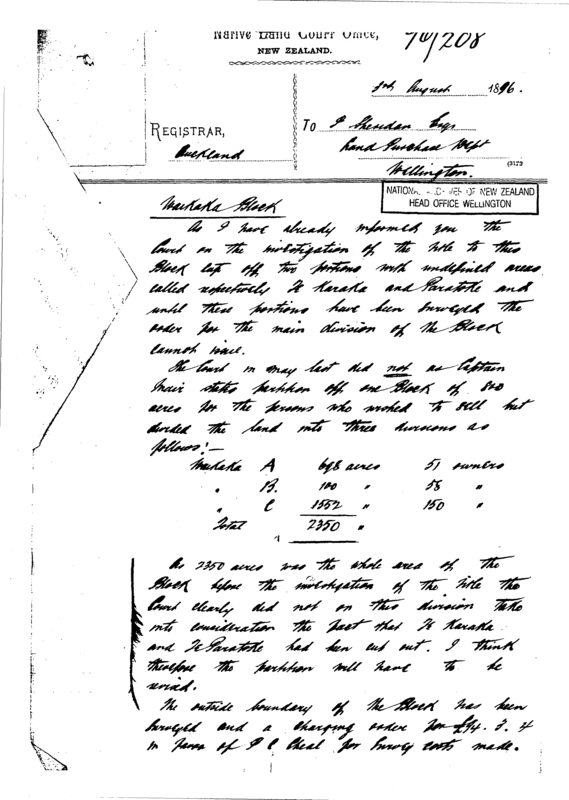 Native Land Court Office,
NEW ZEALAND.
3rd August 1896.
REGISTRAR,
Auckland
To P Sheridan Esqr
Land Purchase Dept
Wellington.
(3173
NATIONAL ARCHIVES OF NEW ZEALAND
HEAD OFFICE WELLINGTON
Block
As I have already informed you the
Court on the investigation of the title to this
Block cut off two portions with undefined areas
called respectively Te Karaka and Paratoke and
until these portions have been surveyed the
order for the main division of the Block
cannot issue.
The Court in May last did not as Captain
Mair states partition off one Block of 800
acres for the persons who wished to sell but
divided the land into three divisions as
follows:—
A 698 acres 51 owners
" B. 100 " 58 "
" C 1552 " 150 "
Total 2350 "
As 2350 acres was the whole area of the
Block before the investigation of the title the
Court clearly did not on this division take
into consideration the fact that Te Karaka
and Te Paratoke had been cut out. I think
therefore the partition will have to be
revised.
The outside boundary of the Block has been
surveyed and a charging order for 3. 4
in favor of P E Cheal for survey costs made.